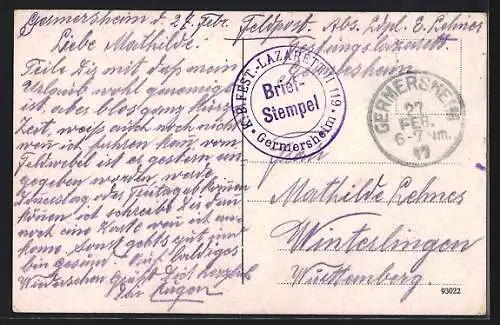 Germersheim d. 27. Febr.
Liebe Mathilde.
Teile Dir mit daß mein
Urlaub wohl genemigt
ist aber blos ganz kurze
Zeit, weiß auch noch nicht
wen ich fahren kan, vom
Feldwebel ist es gestern ein-
gegeben worden, werde
Donnerstag oder Freitag
können ich schreibe Dir dan
noch eine Karte wen ich
kome, Sonst gehts gut und
bin gesund. Auf baldiges
Wiedersehen Grüßt Dich herzlich
Dein Eugen
Feldpost. Abs. Ldpf. E. Lehnes
Festungslazarett
Germersheim
K. B. FEST.-LAZARETT 119
Brief-
Stempel
Germersheim
GERMERSHEIM
27
FEB.
6-7 Vm.
17
Mathilde Lehnes
Winterlingen
Württemberg.
93022